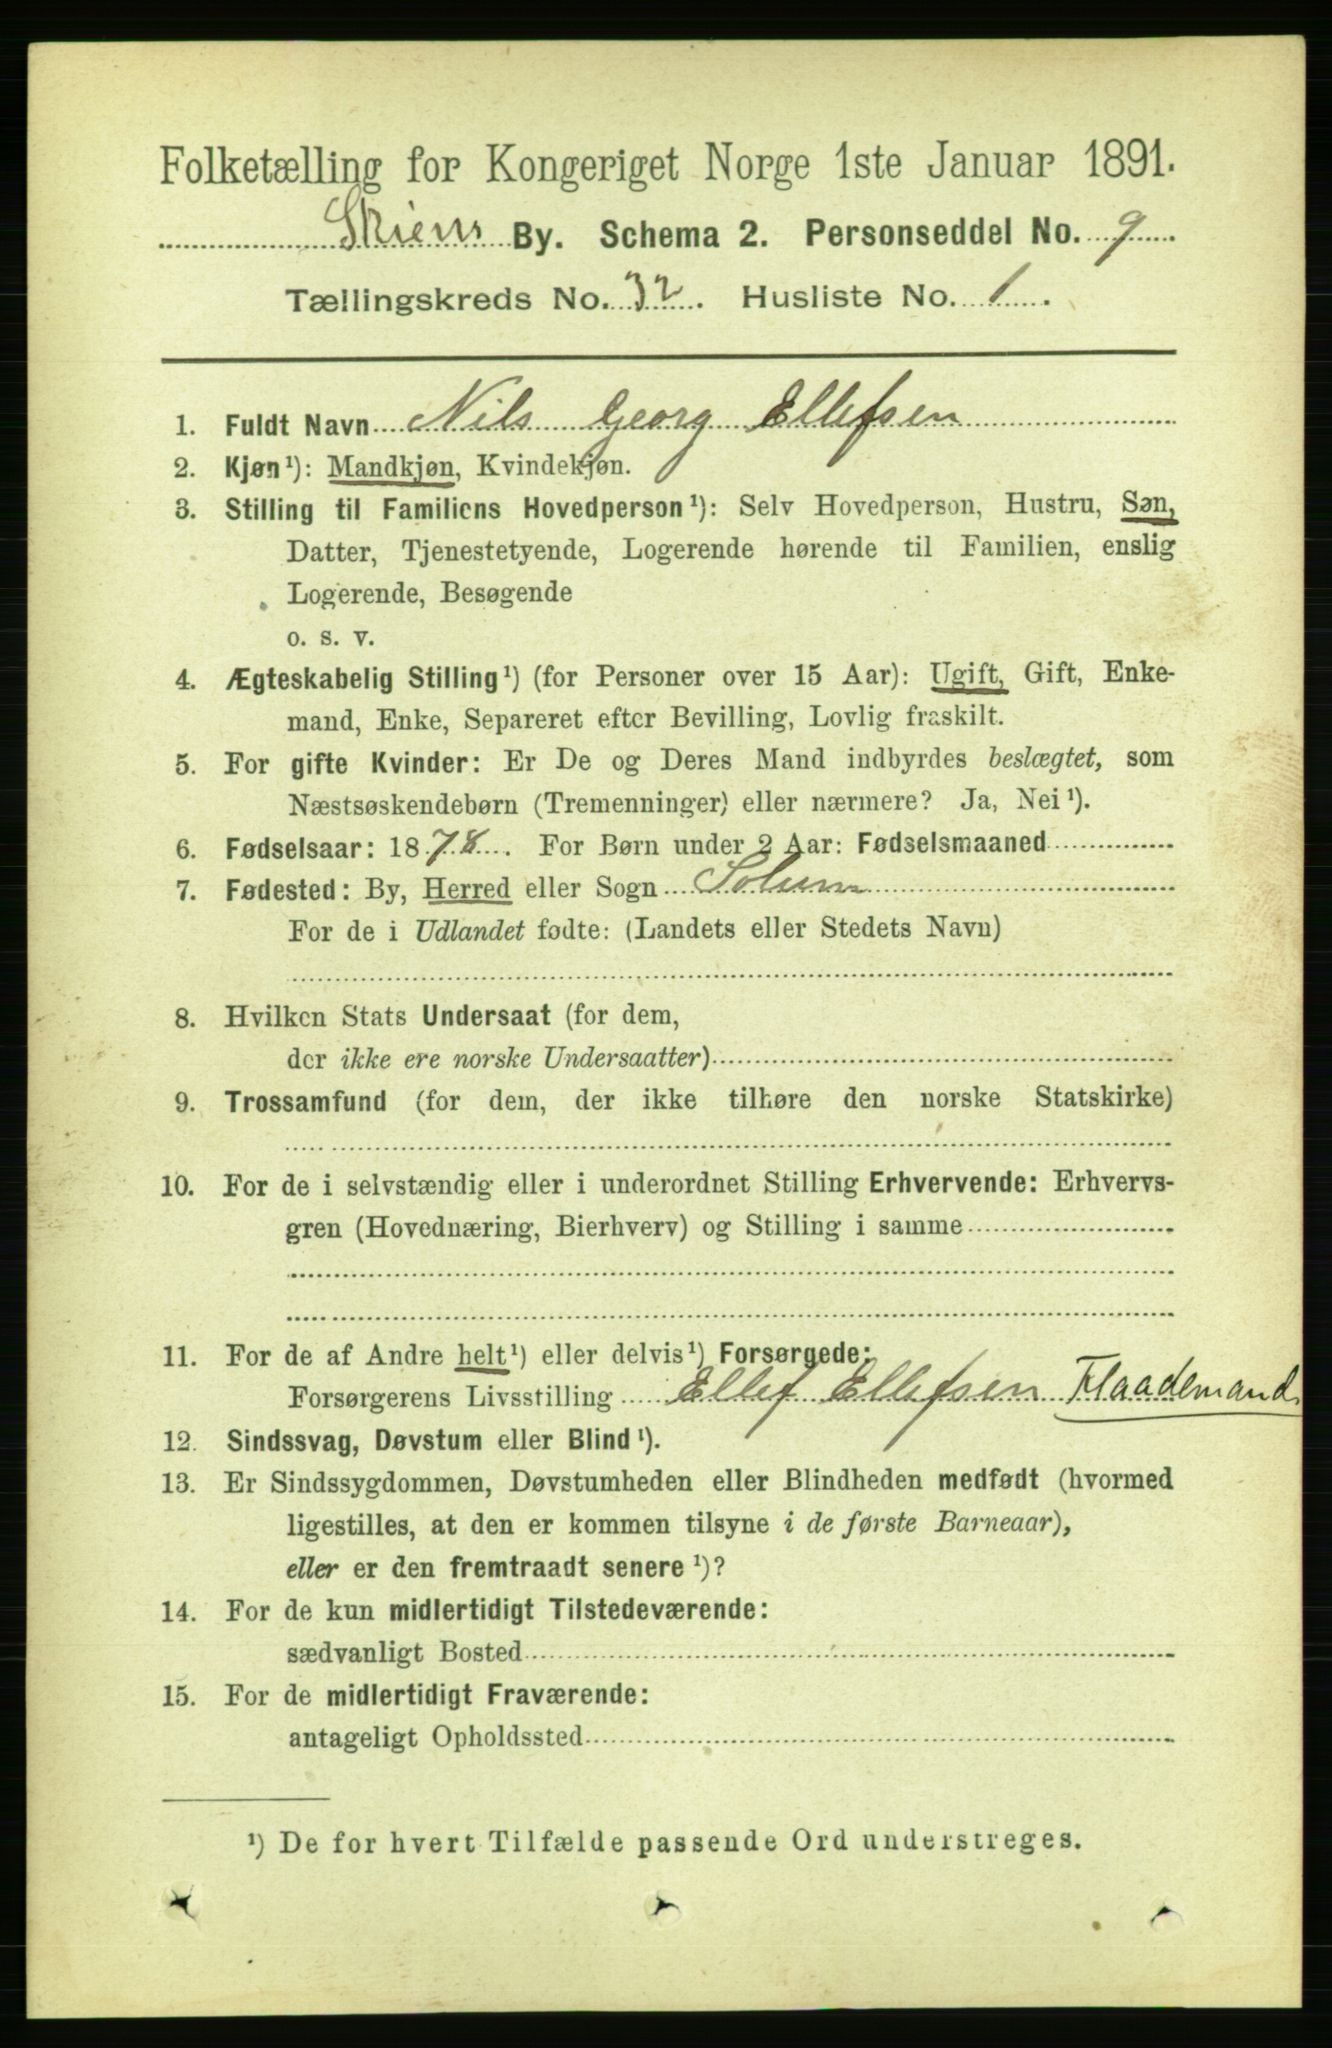 Folketælling for Kongeriget Norge 1ste Januar 1891.
Skiens By. Schema 2. Personseddel No. 9
Tællingskreds No. 32. Husliste No. 1.
1. Fuldt Navn Nils Georg Ellefsen
2. Kjøn¹): Mandkjøn, Kvindekjøn.
3. Stilling til Familiens Hovedperson¹): Selv Hovedperson, Hustru, Søn,
Datter, Tjenestetyende, Logerende hørende til Familien, enslig
Logerende, Besøgende
o. s. v.
4. Ægteskabelig Stilling¹) (for Personer over 15 Aar): Ugift, Gift, Enke-
mand, Enke, Separeret efter Bevilling, Lovlig fraskilt.
5. For gifte Kvinder: Er De og Deres Mand indbyrdes beslægtet, som
Næstsøskendebørn (Tremenninger) eller nærmere? Ja, Nei¹).
6. Fødselsaar: 1878. For Børn under 2 Aar: Fødselsmaaned
7. Fødested: By, Herred eller Sogn Solum
For de i Udlandet fødte: (Landets eller Stedets Navn)
8. Hvilken Stats Undersaat (for dem,
der ikke ere norske Undersaatter)
9. Trossamfund (for dem, der ikke tilhøre den norske Statskirke)
10. For de i selvstændig eller i underordnet Stilling Erhvervende: Erhvervs-
gren (Hovednæring, Bierhverv) og Stilling i samme
11. For de af Andre helt¹) eller delvis¹) Forsørgede:
Forsørgerens Livsstilling Ellef Ellefsen Flaademand
12. Sindssvag, Døvstum eller Blind¹).
13. Er Sindssygdommen, Døvstumheden eller Blindheden medfødt (hvormed
ligestilles, at den er kommen tilsyne i de første Barneaar),
eller er den fremtraadt senere¹)?
14. For de kun midlertidigt Tilstedeværende:
sædvanligt Bosted
15. For de midlertidigt Fraværende:
antageligt Opholdssted
¹) De for hvert Tilfælde passende Ord understreges.